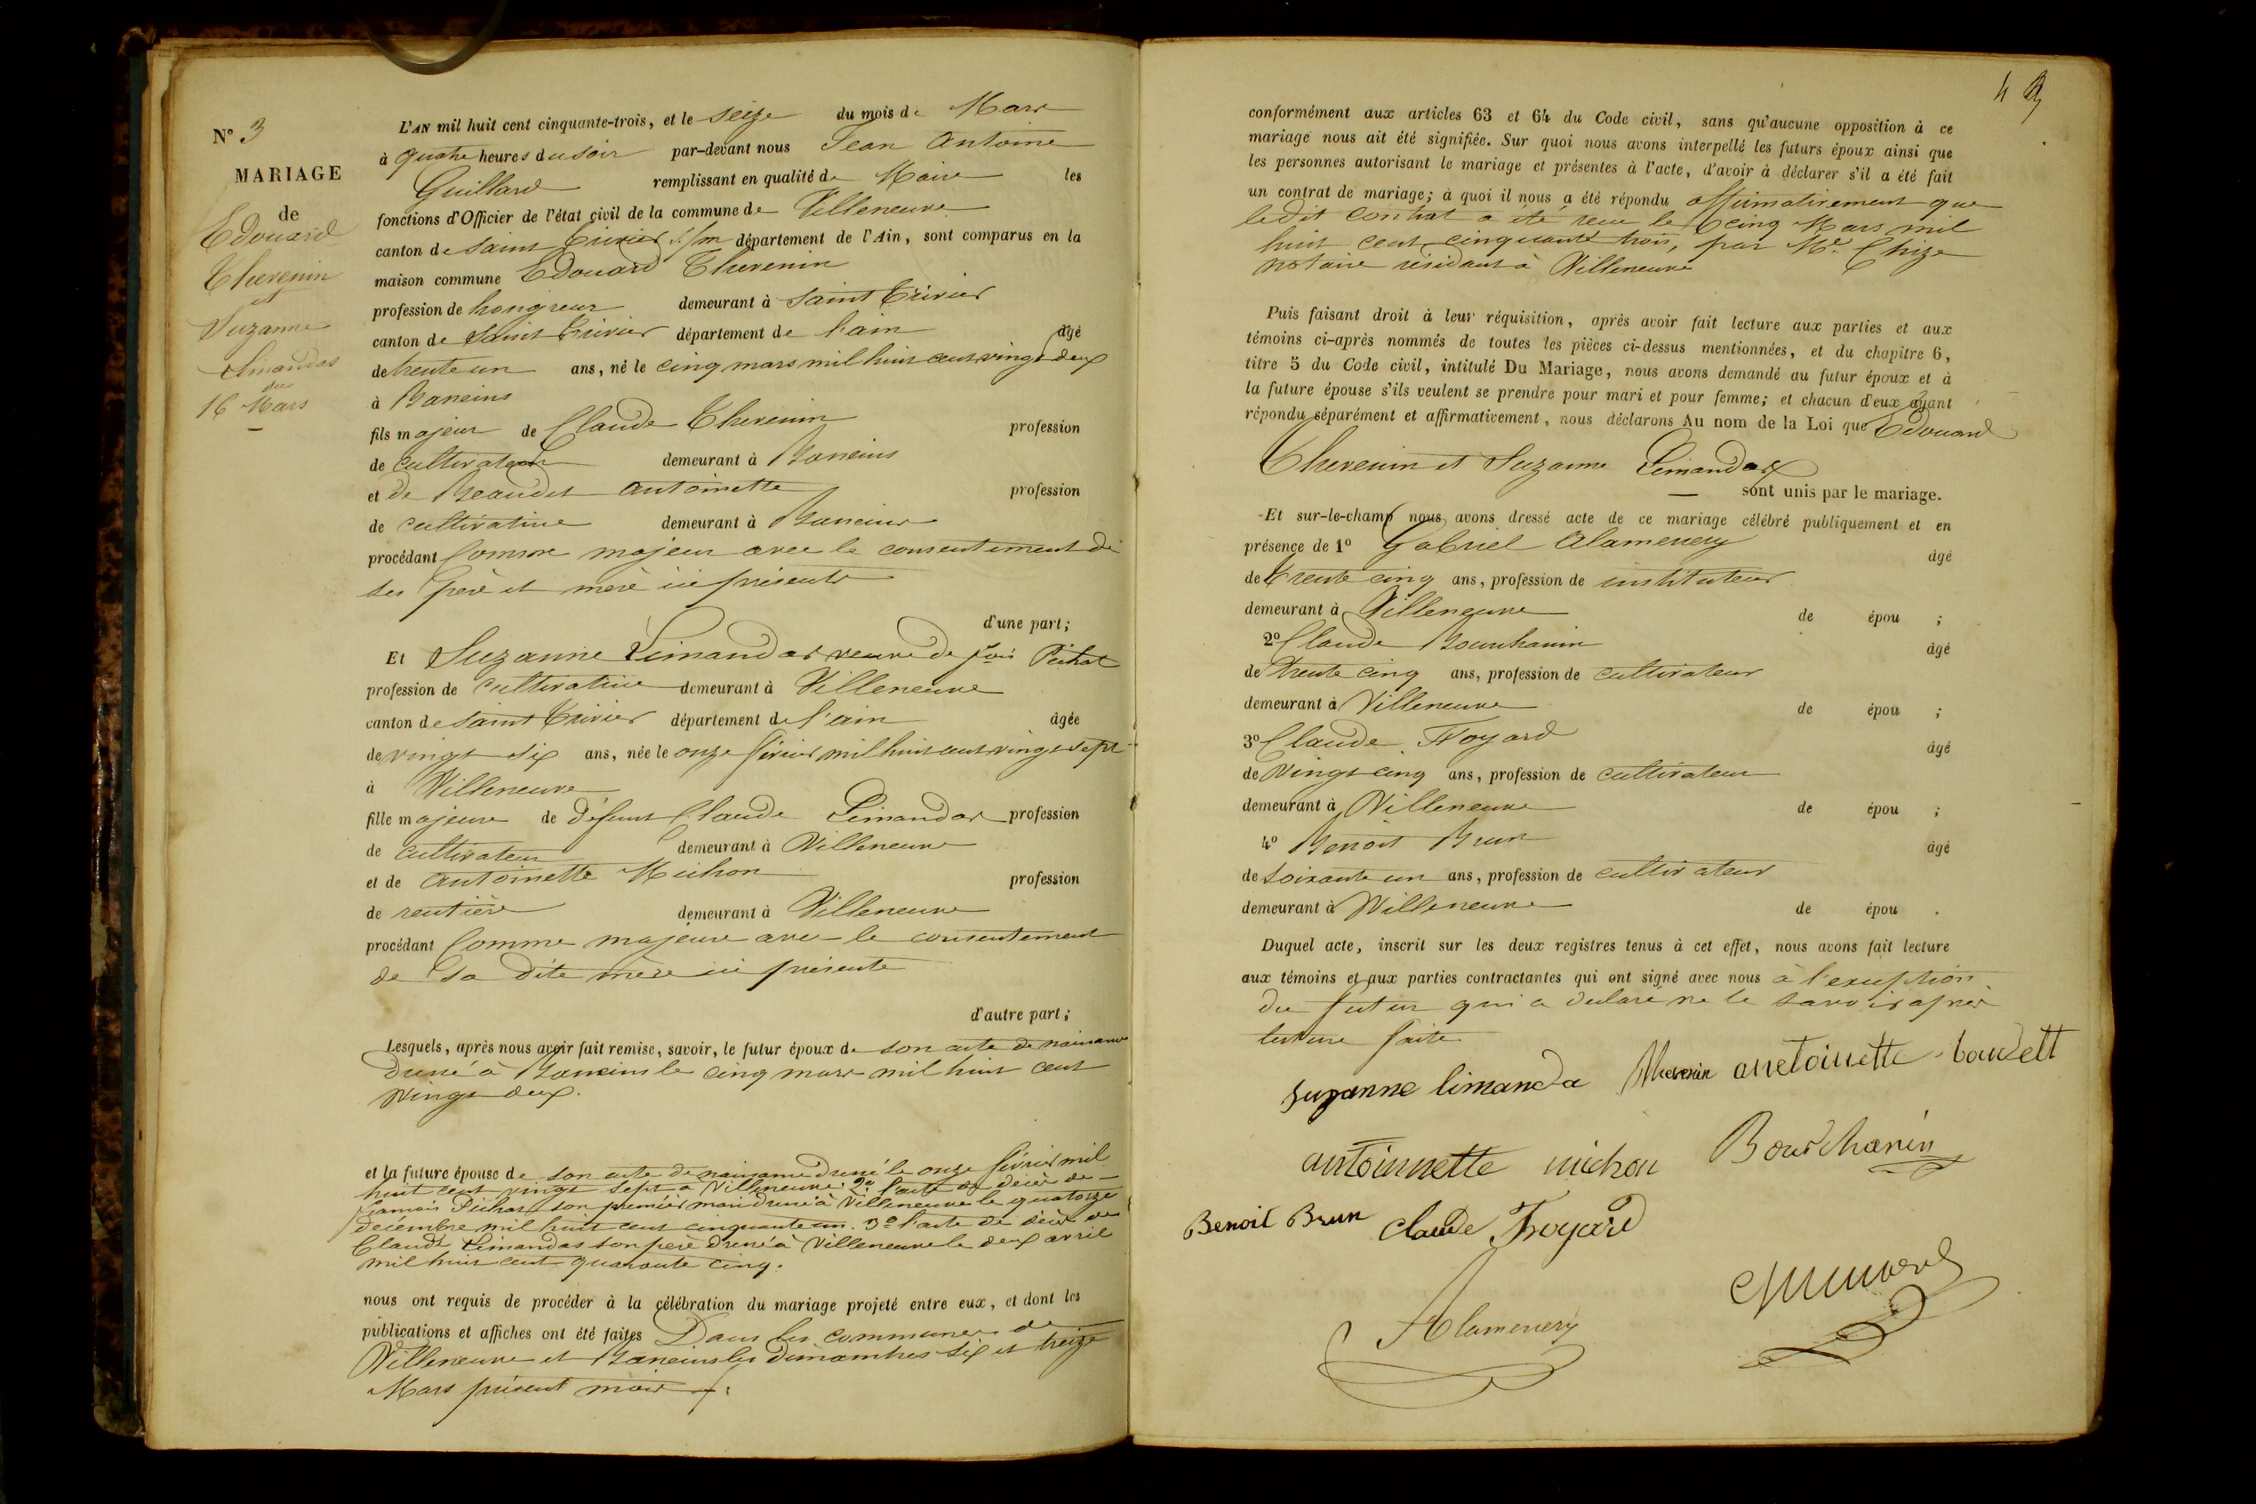 N° 3
MARIAGE
de
Edouard
Thevenin
et
Suzanne
Limandas
du
16 Mars
L'AN mil huit cent cinquante-trois, et le seize du mois de Mars
à quatre heures du soir par-devant nous Jean Antoine
Guillard remplissant en qualité de Maire les
fonctions d'Officier de l'état civil de la commune de Villeneuve
canton de saint Trivier s/m département de l'Ain, sont comparus en la
maison commune Edouard Thevenin
profession de hongreur demeurant à saint Trivier
canton de saint Trivier département de l'ain âgé
de trente un ans, né le cinq mars mil huit cent vingt deux
à Baneins
fils majeur de Claude Thevenin profession
de cultivateur demeurant à Baneins
et de Beaudet antoinette profession
de cultivatrice demeurant à Baneins
procédant Comme majeur avec le consentement de
ses père et mère ici présents
d'une part;
Et Suzanne Limandas veuve de fois Pichat
profession de cultivatrice demeurant à Villeneuve
canton de saint Trivier département de l'ain âgée
de vingt six ans, née le onze février mil huit cent vingt sept
à Villeneuve
fille majeure de défunt Claude Limandas profession
de cultivateur demeurant à Villeneuve
et de antoinette Michon profession
de rentière demeurant à Villeneuve
procédant Comme majeure avec le consentement
de sa dite mère ici présente
d'autre part;
Lesquels, après nous avoir fait remise, savoir, le futur époux de son acte de naissance
dressé à Baneins le cinq mars mil huit cent
vingt deux.
et la future épouse de son acte de naissance dressé le onze février mil
huit cent vingt sept à Villeneuve. 2° l'acte de décès de
françois Pichat son premier mari dressé à Villeneuve le quatorze
décembre mil huit cent cinquante un. 3° l'acte de décès de
Claude Limandas son père dressé à Villeneuve le deux avril
mil huit cent quarante cinq.
nous ont requis de procéder à la célébration du mariage projeté entre eux, et dont les
publications et affiches ont été faites Dans les communes de
Villeneuve et Baneins les dimanches six et treize
Mars présent mois
conformément aux articles 63 et 64 du Code civil, sans qu'aucune opposition à ce
mariage nous ait été signifiée. Sur quoi nous avons interpellé les futurs époux ainsi que
les personnes autorisant le mariage et présentes à l'acte, d'avoir à déclarer s'il a été fait
un contrat de mariage; à quoi il nous a été répondu affirmativement que
ledit contrat a été reçu le cinq Mars mil
huit cent cinquante trois, par Me. Chize
notaire résidant à Villeneuve
Puis faisant droit à leur réquisition, après avoir fait lecture aux parties et aux
témoins ci-après nommés de toutes les pièces ci-dessus mentionnées, et du chapitre 6,
titre 5 du Code civil, intitulé Du Mariage, nous avons demandé au futur époux et à
la future épouse s'ils veulent se prendre pour mari et pour femme; et chacun d'eux ayant
répondu séparément et affirmativement, nous déclarons Au nom de la Loi que Edouard
Thevenin et Suzanne Limandas
sont unis par le mariage.
Et sur-le-champ nous avons dressé acte de ce mariage célébré publiquement et en
présence de 1° Gabriel Alamercery âgé
de trente cinq ans, profession de instituteur
demeurant à Villeneuve de épou ;
2° Claude Bourchanin âgé
de trente cinq ans, profession de cultivateur
demeurant à Villeneuve de épou ;
3° Claude Froyard âgé
de vingt cinq ans, profession de cultivateur
demeurant à Villeneuve de épou ;
4° Benoit Brun âgé
de soixante un ans, profession de cultivateur
demeurant à Villeneuve de épou .
Duquel acte, inscrit sur les deux registres tenus à cet effet, nous avons fait lecture
aux témoins et aux parties contractantes qui ont signé avec nous à l'exception
du futur qui a déclaré ne le savoir après
lecture faite
suzanne limanda Thevenin anetoinette baudett
antoinnette michon Bourchanin
Benoit Brun Claude Froyard
Alamercery Guillard